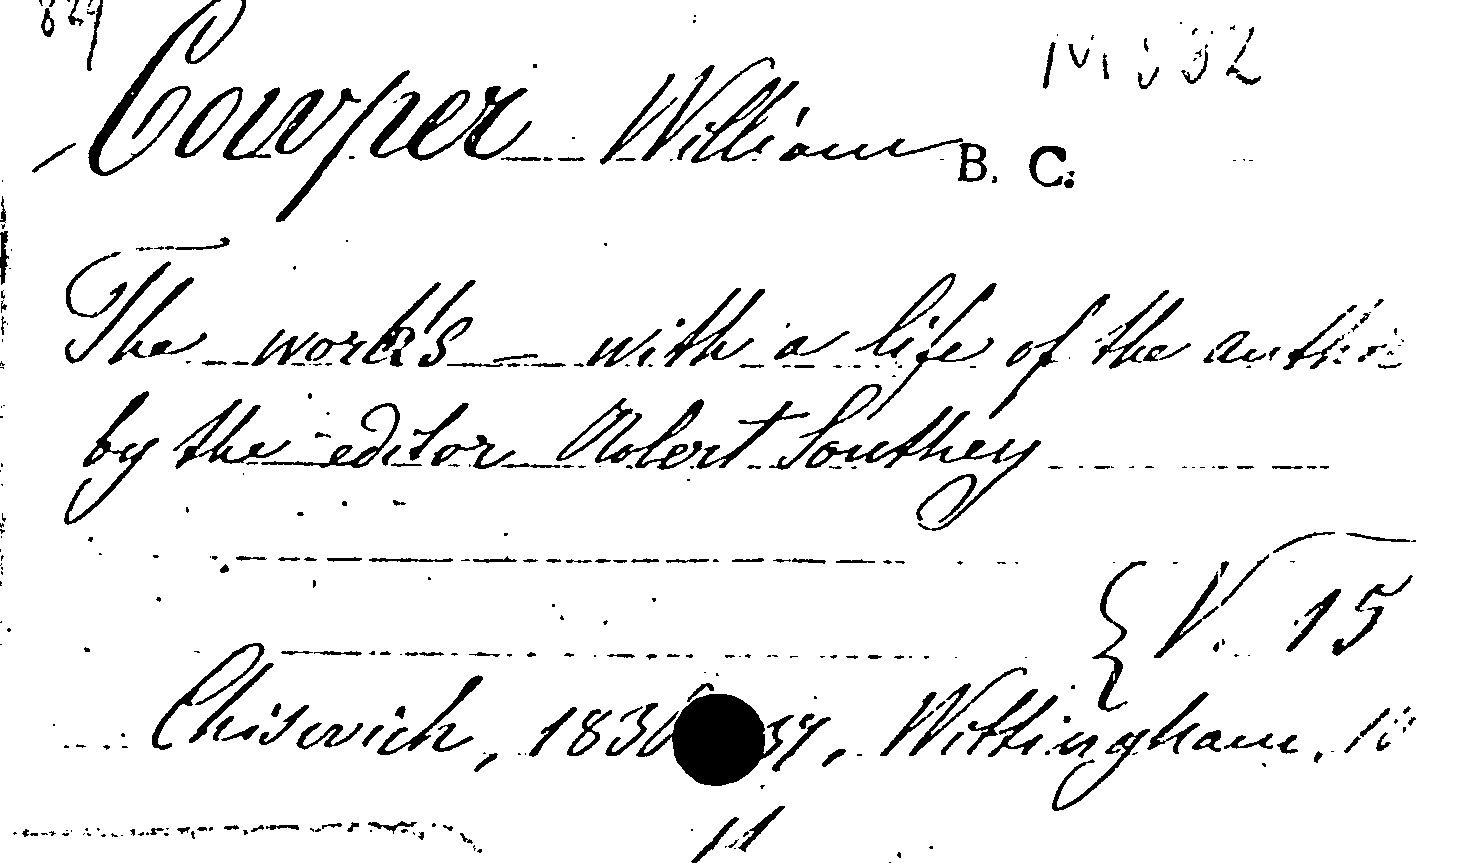 829
Cowper William B. C.
The works — with a life of the author
by the editor Robert Southey
V. 15
Chiswich, 1836 37, Wittingham,